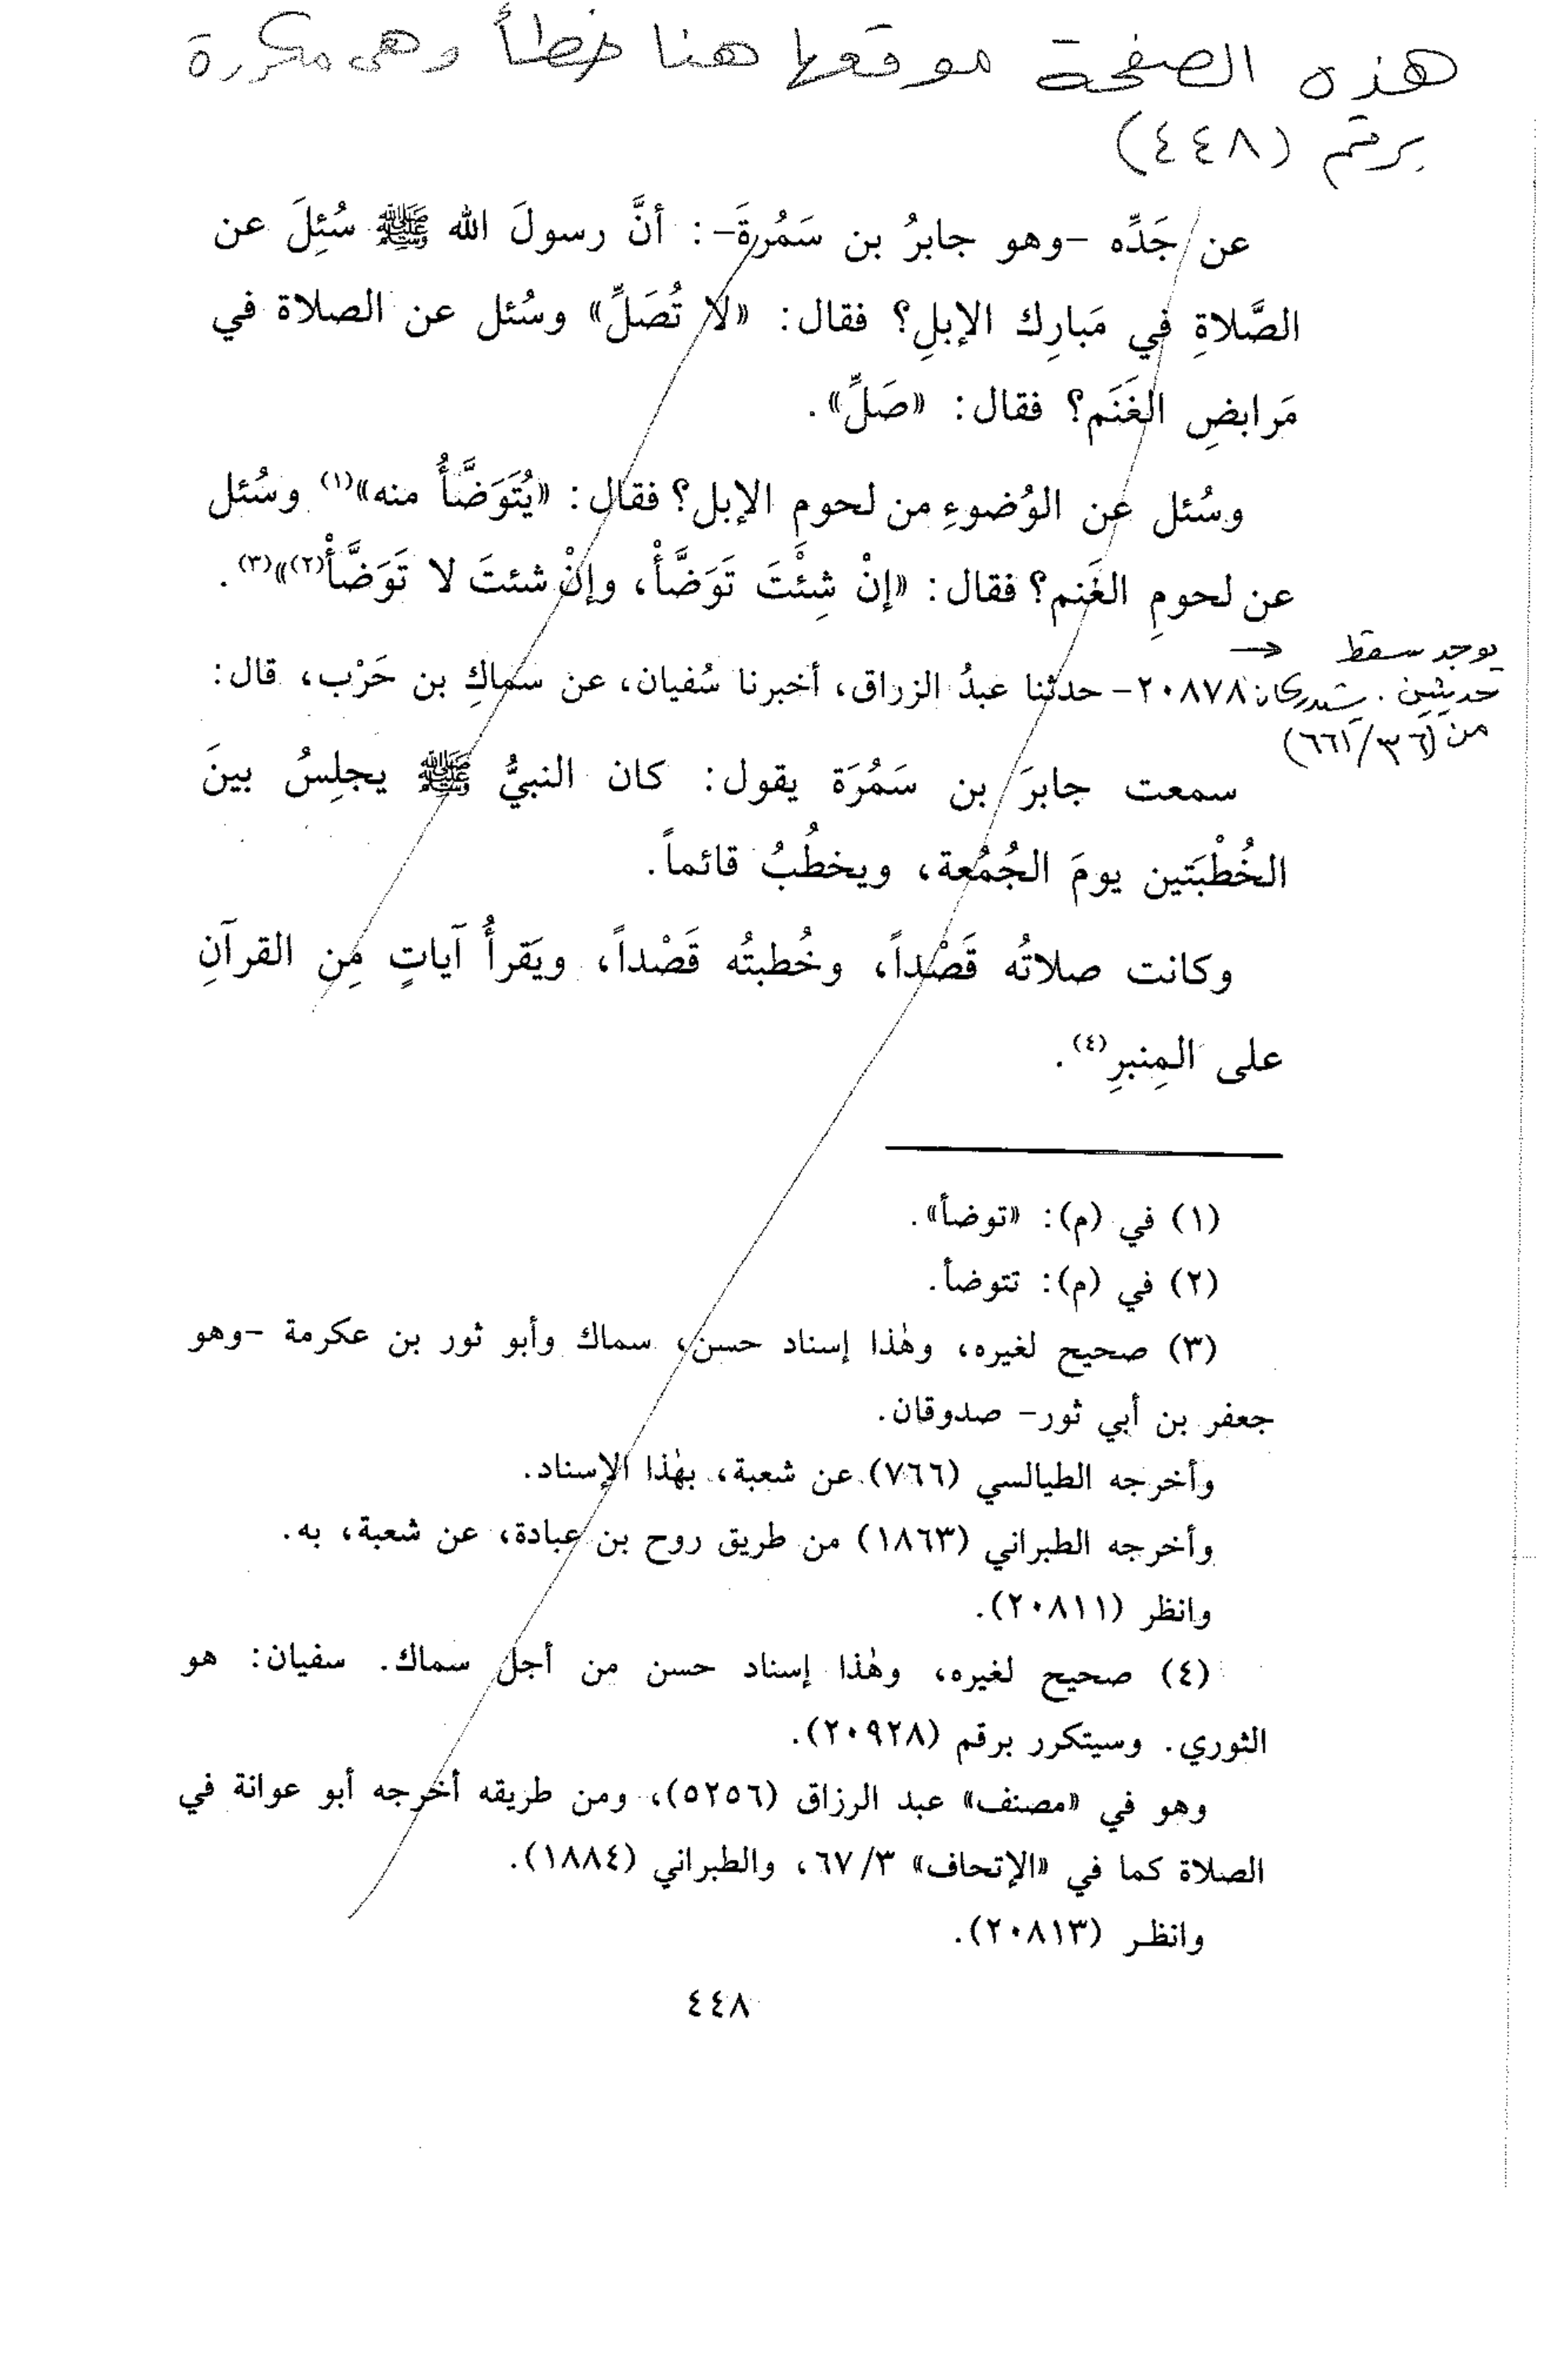 هذه الصفحة موقعها هنا خطأ وهي مكررة
برقم (٤٤٨)
عن جَدِّه -وهو جابرُ بن سَمُرةَ-: أنَّ رسولَ الله ﷺ سُئِلَ عن
الصَّلاةِ في مَبارِك الإبلِ؟ فقال: «لا تُصَلِّ» وسُئل عن الصلاة في
مَرابضِ الغَنَم؟ فقال: «صَلِّ».
وسُئل عن الوُضوءِ من لحومِ الإبل؟ فقال: «يُتَوَضَّأُ منه»(١) وسُئل
عن لحومِ الغَنم؟ فقال: «إنْ شِئْتَ تَوَضَّأْ، وإنْ شئتَ لا تَوَضَّأْ(٢)»(٣).
يوجد سقط →
حديثين. يستدركان
من (٣٦/٦٦١)
٢٠٨٧٨- حدثنا عبدُ الزراق، أخبرنا سُفيان، عن سماكِ بن حَرْب، قال:
سمعت جابرَ بن سَمُرَة يقول: كان النبيُّ ﷺ يجلِسُ بينَ
الخُطْبَتين يومَ الجُمُعة، ويخطُبُ قائماً.
وكانت صلاتُه قَصْداً، وخُطبتُه قَصْداً، ويَقرأُ آياتٍ مِن القرآنِ
على المِنبرِ(٤).
(١) في (م): «توضأ».
(٢) في (م): تتوضأ.
(٣) صحيح لغيره، وهٰذا إسناد حسن، سماك وأبو ثور بن عكرمة -وهو
جعفر بن أبي ثور- صدوقان.
وأخرجه الطيالسي (٧٦٦) عن شعبة، بهٰذا الإسناد.
وأخرجه الطبراني (١٨٦٣) من طريق روح بن عبادة، عن شعبة، به.
وانظر (٢٠٨١١).
(٤) صحيح لغيره، وهٰذا إسناد حسن من أجل سماك. سفيان: هو
الثوري. وسيتكرر برقم (٢٠٩٢٨).
وهو في «مصنف» عبد الرزاق (٥٢٥٦)، ومن طريقه أخرجه أبو عوانة في
الصلاة كما في «الإتحاف» ٦٧/٣، والطبراني (١٨٨٤).
وانظر (٢٠٨١٣).
٤٤٨